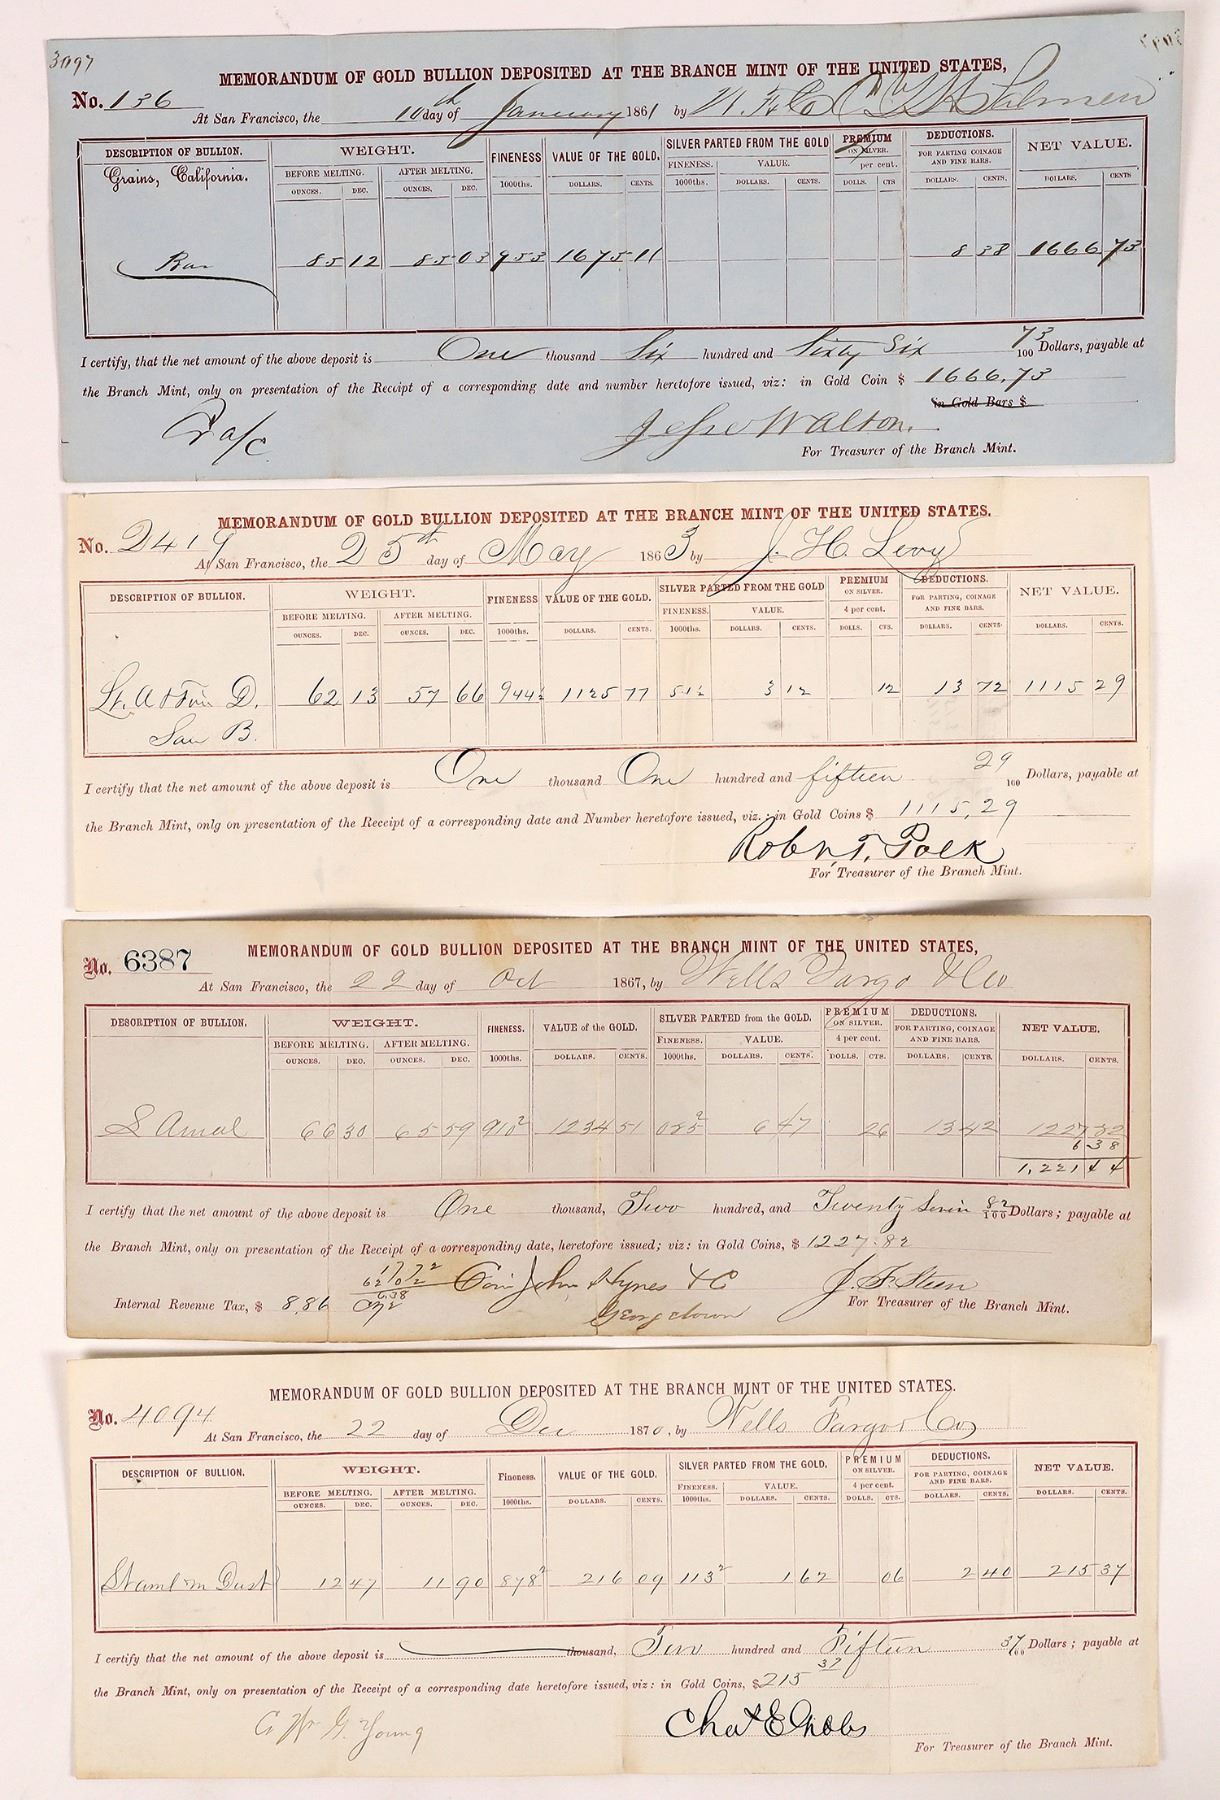 3097
MEMORANDUM OF GOLD BULLION DEPOSITED AT THE BRANCH MINT OF THE UNITED STATES,
No. 136
At San Francisco, the 10th day of January 1861 by W. F. & Co
DESCRIPTION OF BULLION. WEIGHT. FINENESS VALUE OF THE GOLD. SILVER PARTED FROM THE GOLD PREMIUM ON SILVER. DEDUCTIONS. NET VALUE.
Grains, California. BEFORE MELTING. AFTER MELTING. FINENESS. VALUE. per cent. FOR PARTING COINAGE AND FINE BARS.
OUNCES. DEC. OUNCES. DEC. 1000ths. DOLLARS. CENTS. 1000ths. DOLLARS. CENTS. DOLLS. CTS DOLLARS. CENTS. DOLLARS. CENTS
Bar 85 12 85 03 953 1675 11 8 38 1666 73
I certify, that the net amount of the above deposit is One thousand Six hundred and Sixty Six 73/100 Dollars, payable at
the Branch Mint, only on presentation of the Receipt of a corresponding date and number heretofore issued, viz: in Gold Coin $ 1666.73
in Gold Bars $
a/c Jesse Walton.
For Treasurer of the Branch Mint.
MEMORANDUM OF GOLD BULLION DEPOSITED AT THE BRANCH MINT OF THE UNITED STATES.
No. 2419
At San Francisco, the 25th day of May 1863 by J. H. Levy
DESCRIPTION OF BULLION. WEIGHT. FINENESS VALUE OF THE GOLD. SILVER PARTED FROM THE GOLD PREMIUM ON SILVER. DEDUCTIONS. NET VALUE.
BEFORE MELTING. AFTER MELTING. FINENESS. VALUE. 4 per cent. FOR PARTING, COINAGE AND FINE BARS.
OUNCES. DEC. OUNCES. DEC. 1000ths. DOLLARS. CENTS. 1000ths. DOLLARS. CENTS. DOLLS. CTS. DOLLARS. CENTS. DOLLARS. CENTS.
D. 62 13 57 66 944½ 1125 77 51½ 3 12 12 13 72 1115 29
San B.
I certify that the net amount of the above deposit is One thousand One hundred and fifteen 29/100 Dollars, payable at
the Branch Mint, only on presentation of the Receipt of a corresponding date and Number heretofore issued, viz.: in Gold Coins $ 1115,29
Robt. T. Polk
For Treasurer of the Branch Mint.
MEMORANDUM OF GOLD BULLION DEPOSITED AT THE BRANCH MINT OF THE UNITED STATES,
No. 6387
At San Francisco, the 22 day of Oct 1867, by Wells Fargo & Co
DESCRIPTION OF BULLION. WEIGHT. FINENESS. VALUE of the GOLD. SILVER PARTED from the GOLD. PREMIUM ON SILVER. DEDUCTIONS. NET VALUE.
BEFORE MELTING. AFTER MELTING. FINENESS. VALUE. 4 per cent. FOR PARTING, COINAGE AND FINE BARS.
OUNCES. DEC. OUNCES. DEC. 1000ths. DOLLARS. CENTS. 1000ths. DOLLARS. CENTS. DOLLS. CTS. DOLLARS. CENTS. DOLLARS. CENTS.
S Amal 66 30 65 59 910² 1234 51 085² 6 47 26 13 42 1227 82
6 38
1,221 44
I certify that the net amount of the above deposit is One thousand, Two hundred, and Twenty Seven 82/100 Dollars; payable at
the Branch Mint, only on presentation of the Receipt of a corresponding date, heretofore issued; viz: in Gold Coins, $ 1227.82
Coin John Hynes & C J. F. Steen
Internal Revenue Tax, $ 8,86 6.38 Georgetown For Treasurer of the Branch Mint.
MEMORANDUM OF GOLD BULLION DEPOSITED AT THE BRANCH MINT OF THE UNITED STATES.
No. 4094
At San Francisco, the 22 day of Dec 1870, by Wells Fargo & Co
DESCRIPTION OF BULLION. WEIGHT. Fineness. VALUE OF THE GOLD. SILVER PARTED FROM THE GOLD. PREMIUM ON SILVER. DEDUCTIONS. NET VALUE.
BEFORE MELTING. AFTER MELTING. FINENESS. VALUE. 4 per cent. FOR PARTING, COINAGE AND FINE BARS.
OUNCES. DEC. OUNCES. DEC. 1000ths. DOLLARS. CENTS. 1000ths. DOLLARS. CENTS. DOLLS. CTS. DOLLARS. CENTS. DOLLARS. CENTS.
Dust 12 47 11 90 878² 216 09 113² 1 62 06 2 40 215 37
I certify that the net amount of the above deposit is thousand, Two hundred and Fifteen 37/100 Dollars; payable at
the Branch Mint, only on presentation of the Receipt of a corresponding date heretofore issued, viz: in Gold Coins, $215 37
G. Young
For Treasurer of the Branch Mint.